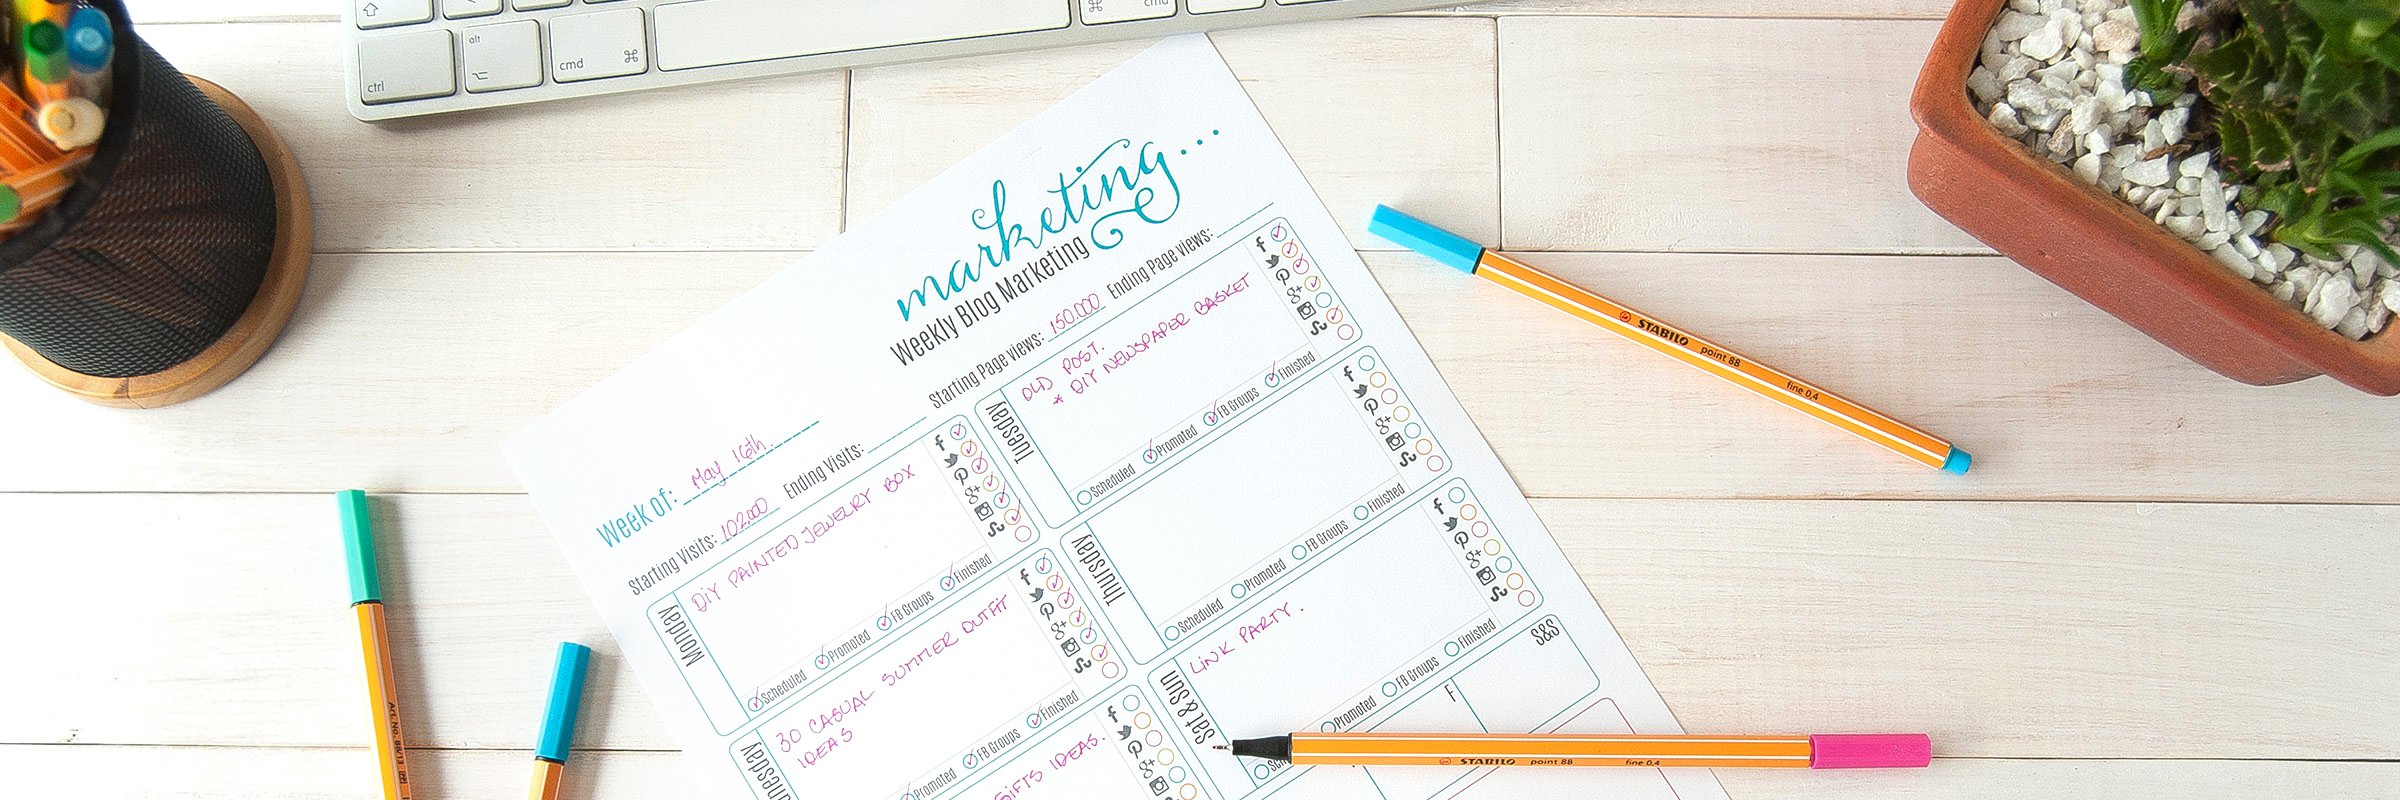 alt
cmd
ctrl
cmd
marketing...
Weekly Blog Marketing
Week of: May 16th.
Starting Visits: 102.000 Ending Visits:
Starting Page views: 150.000 Ending Page views:
Monday
DIY PAINTED JEWELRY BOX
Scheduled Promoted FB Groups Finished
Tuesday
OLD POST.
* DIY NEWSPAPER BASKET
Scheduled Promoted FB Groups Finished
30 CASUAL SUMMER OUTFIT
IDEAS
Promoted FB Groups Finished
Thursday
Scheduled Promoted FB Groups Finished
GIFTS IDEAS.
Sat & Sun
LINK PARTY.
Promoted FB Groups Finished
S&S
F
STABILO point 88 fine 0,4
STABILO point 88 fine 0,4
Art. No. 88/13